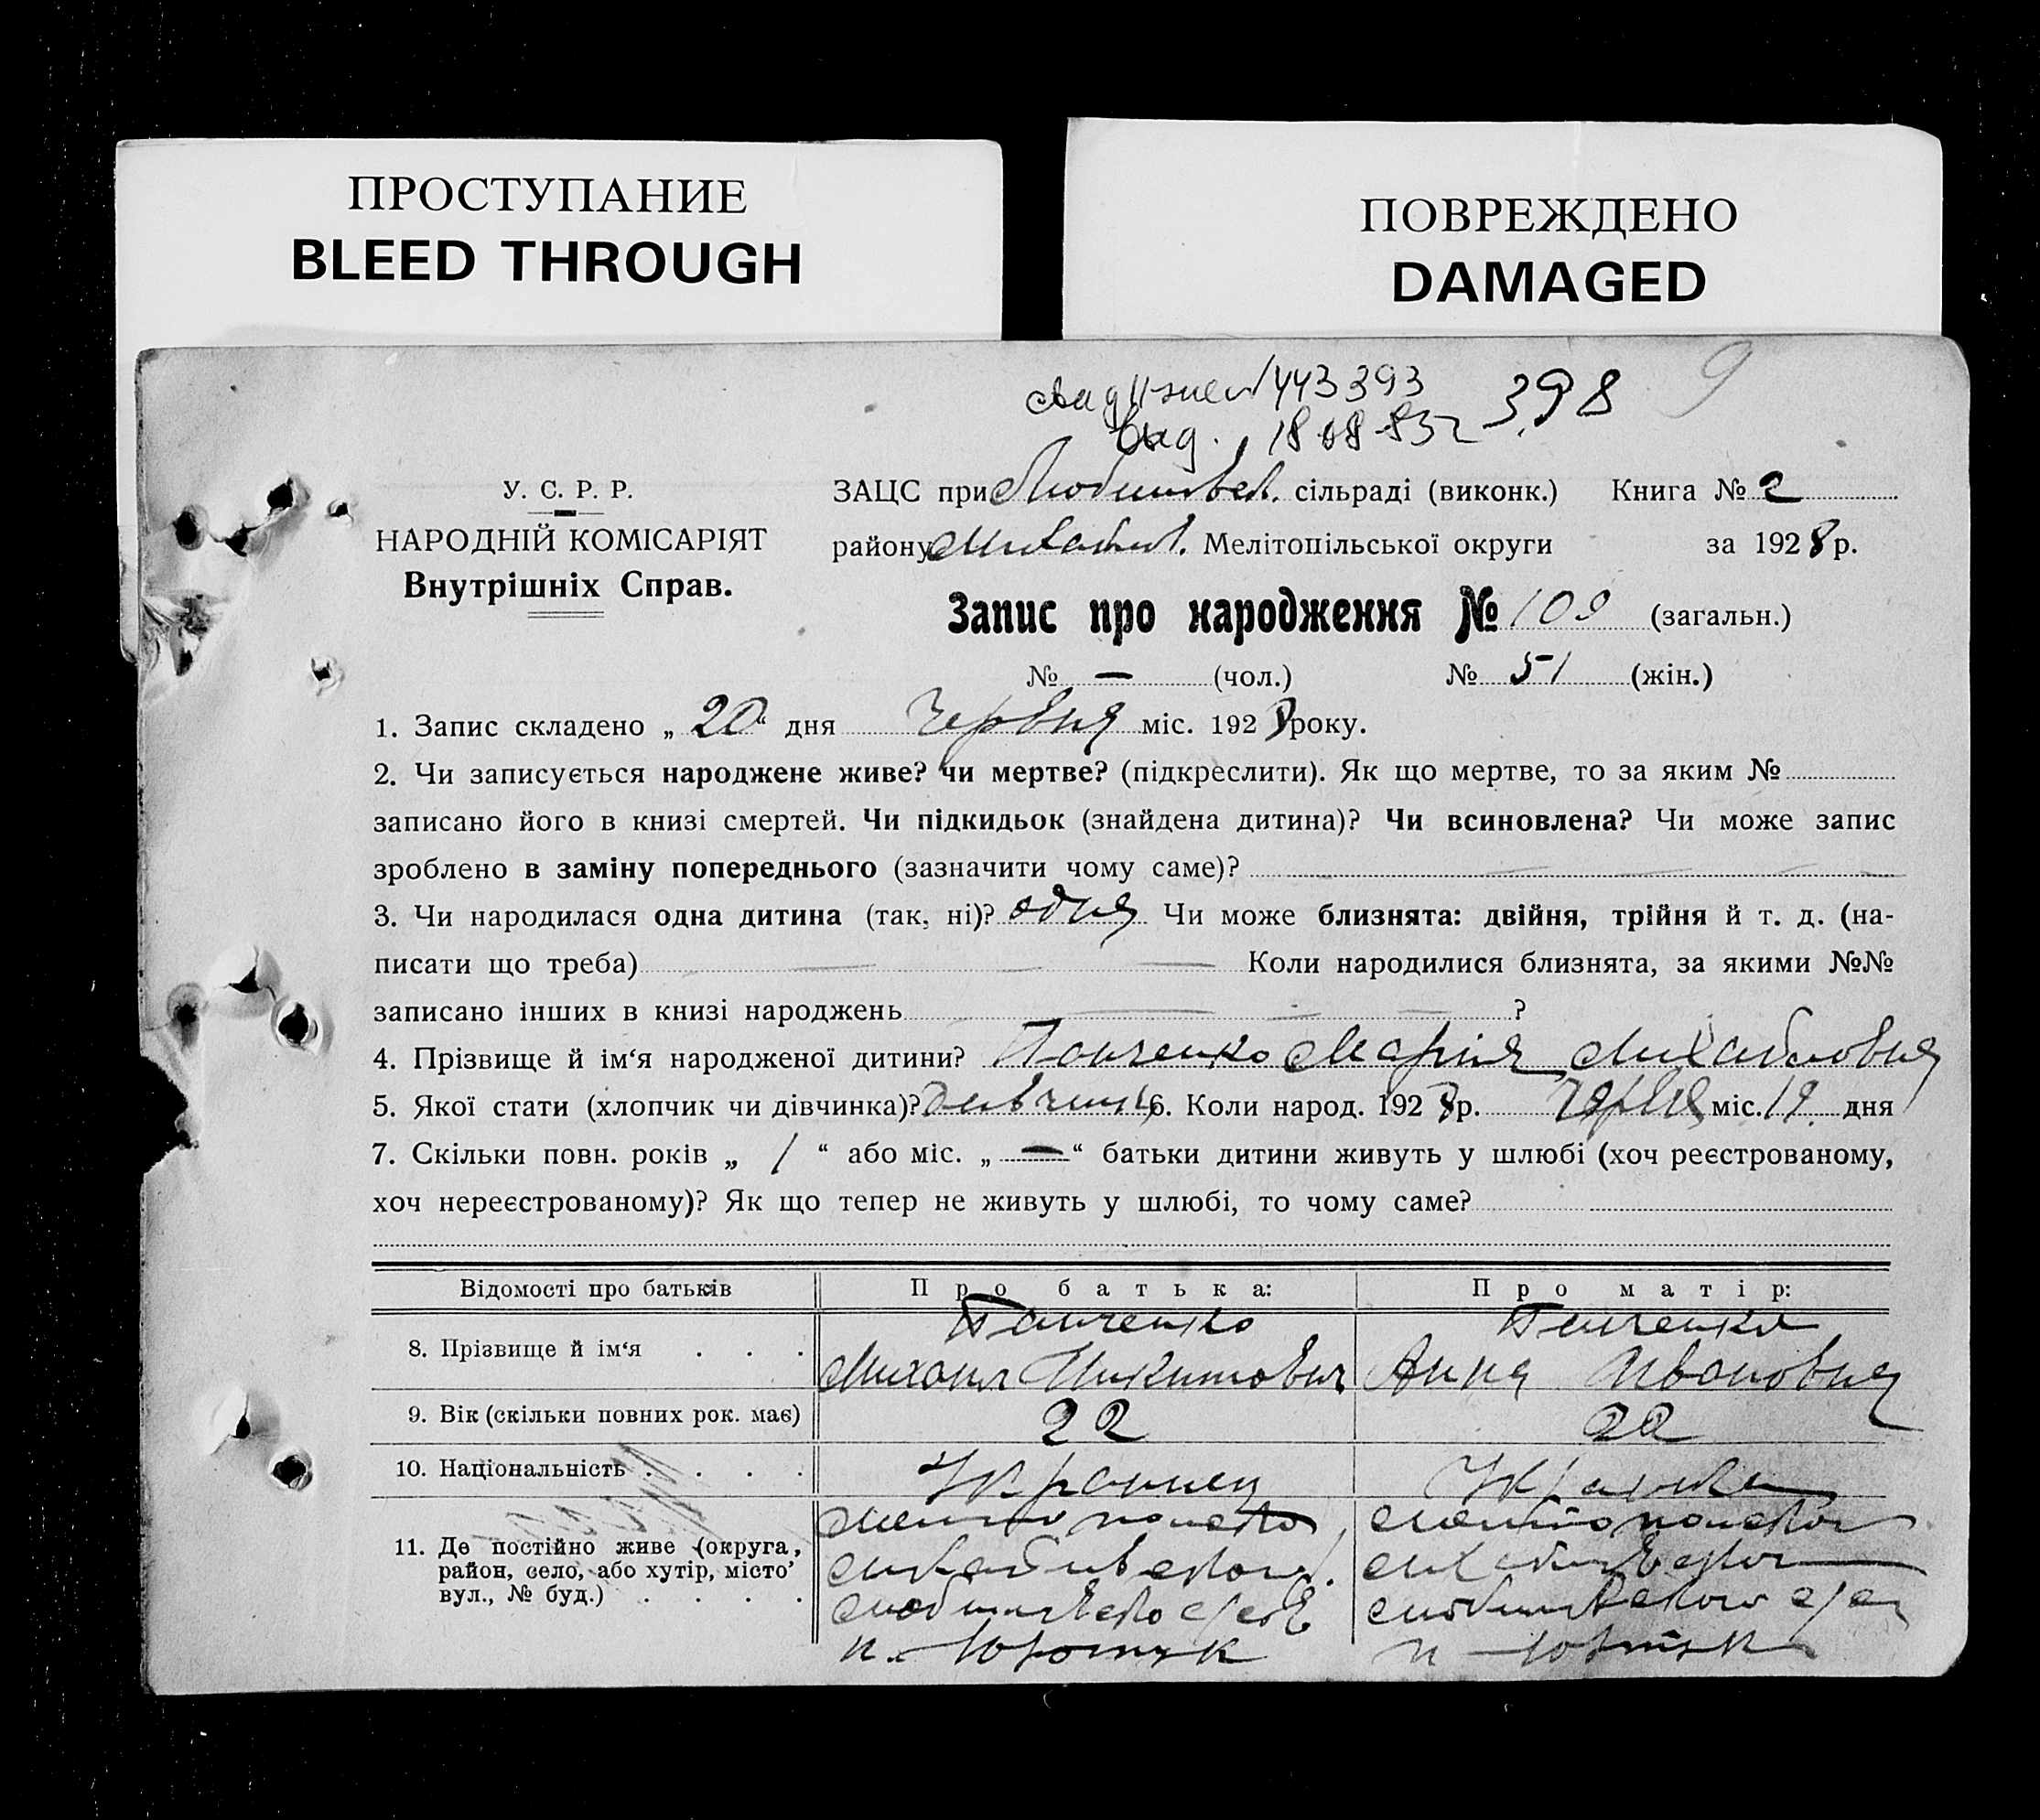 ПРОСТУПАНИЕ
BLEED THROUGH
ПОВРЕЖДЕНО
DAMAGED
443393 398 9
вид. 18.08.83г
У. С. Р. Р.
НАРОДНІЙ КОМІСАРІЯТ
Внутрішніх Справ.
ЗАЦС при Любимівск. сільраді (виконк.) Книга № 2
району Михайлів. Мелітопільської округи за 1928 р.
Запис про народження № 109 (загальн.)
№ — (чол.) № 51 (жін.)
1. Запис складено „ 20 “ дня червня міс. 1928 року.
2. Чи записується народжене живе? чи мертве? (підкреслити). Як що мертве, то за яким №
записано його в книзі смертей. Чи підкидьок (знайдена дитина)? Чи всиновлена? Чи може запис
зроблено в заміну попереднього (зазначити чому саме)?
3. Чи народилася одна дитина (так, ні)? одна Чи може близнята: двійня, трійня й т. д. (на-
писати що треба) Коли народилися близнята, за якими №№
записано інших в книзі народжень ?
4. Прізвище й ім‘я народженої дитини? Панченко Марія Михайловна
5. Якої стати (хлопчик чи дівчинка)? 6. Коли народ. 1928 р. червня міс. 19 дня
7. Скільки повн. років „ 1 “ або міс. „ — “ батьки дитини живуть у шлюбі (хоч реєстрованому,
хоч нереєстрованому)? Як що тепер не живуть у шлюбі, то чому саме?
Відомості про батьків Про батька: Про матір:
8. Прізвище й ім‘я . . . Панченко Михаил Никитович Панченко Анна Ивановна
9. Вік (скільки повних рок. має) 22 22
10. Національність . . . . Украинец Украинка
11. Де постійно живе (округа,
район, село, або хутір, місто
вул., № буд.) . . . .